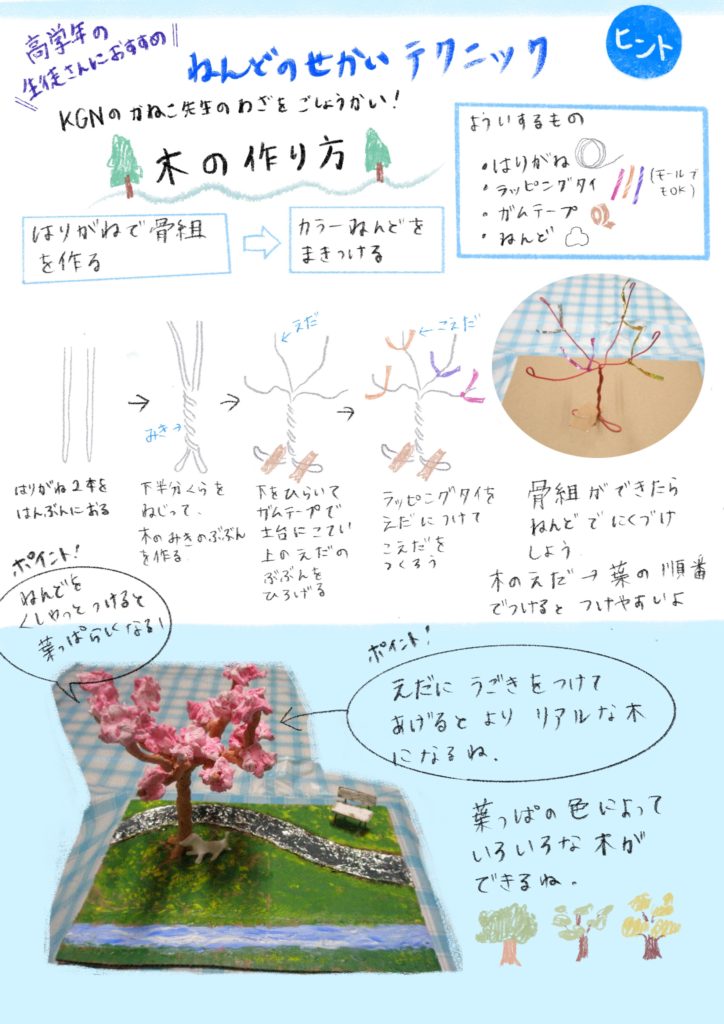 高学年の
生徒さんにおすすめ
ねんどのせかい テクニック
ヒント
KGNの かねこ先生の わざを ごしょうかい！
木の作り方
よういするもの
・はりがね
・ラッピングタイ
(モールで
もOK)
・ガムテープ
・ねんど
はりがねで骨組
を作る
カラーねんどを
まきつける
みき
えだ
こえだ
はりがね2本を
はんぶんにおる
下半分くらを
ねじって、
木のみきのぶぶん
を作る
下をひらいて
ガムテープで
土台にこてい
上のえだの
ぶぶんを
ひろげる
ラッピングタイを
えだにつけて
こえだを
つくろう
骨組ができたら
ねんどでにくづけ
しよう
木のえだ→葉の順番
でつけると つけやすいよ
ポイント！
ねんどを
くしゃっとつけると
葉っぱらしくなる！
ポイント！
えだに うごきをつけて
あげると より リアルな木
になるね.
葉っぱの色によって
いろいろな木が
できるね.